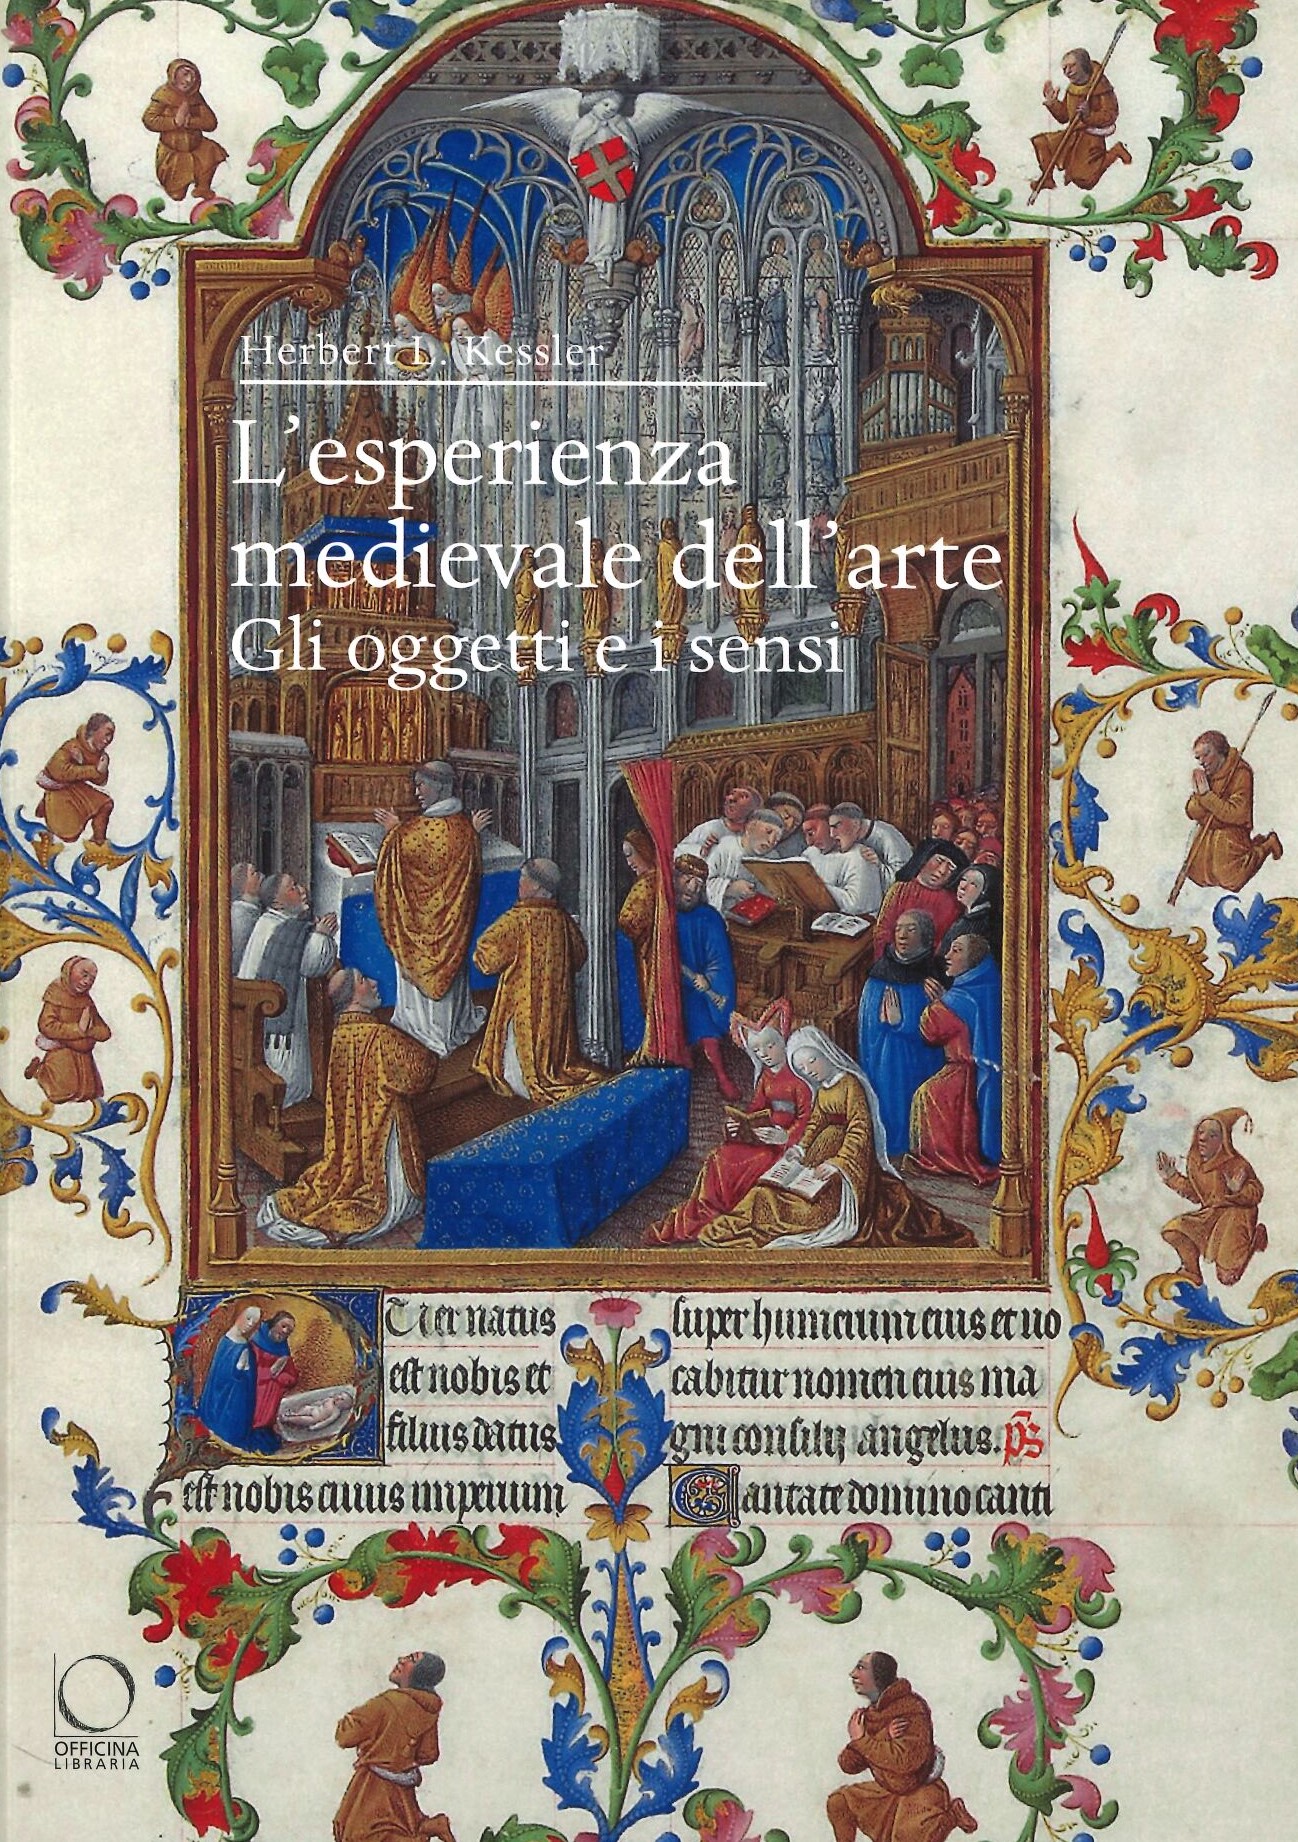 Herbert L. Kessler
L'esperienza
medievale dell'arte
Gli oggetti e i sensi
Puer natus
est nobis et
filius datus
est nobis cuius imperium
super humerum eius et uo
cabitur nomen eius ma
gni consilij angelus. ps
Cantate domino canti
OFFICINA
LIBRARIA